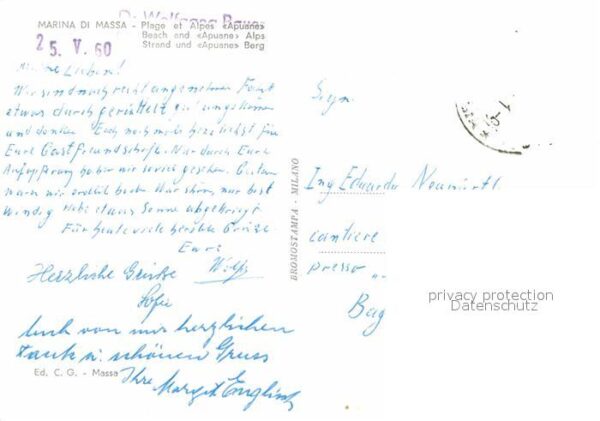 Dr. Wolfgang Bauer
MARINA DI MASSA - Plage et Alpes «Apuane»
Beach and «Apuane» Alps
Strand und «Apuane» Berg
25. V. 60
Meine Lieben!
Wir sind nach recht angenehmer Fahrt
etwas durchgerüttelt gut angekommen
und danken Euch noch mals herzlichst für
Eure Gastfreundschaft. Nur durch Eure
Aufopferung haben wir soviel gesehen. Gestern
waren wir
windig habe etwas Sonne abgekriegt
Für heute viele herzliche Grüsse
Eure
Wolfg
Herzliche Grüsse
Sofie
Auch von mir herzlichen
Dank u. schönen Gruss
Ihre Margit Englisch
Ed. C. G. - Massa
BROMOSTAMPA - MILANO
Ing Eduardo
cantiere
presso
privacy protection
Datenschutz